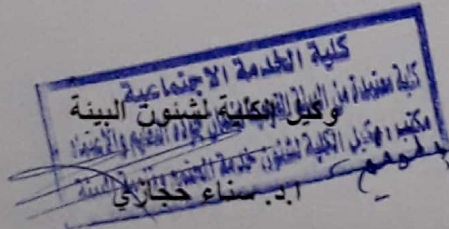 كلية الخدمة الاجتماعية
كلية معتمدة من الهيئة القومية لضمان جودة التعليم والاعتماد
وكيل الكلية لشئون البيئة
مكتب وكيل الكلية لشئون خدمة المجتمع وتنمية البيئة
ا.د. سناء حجازي